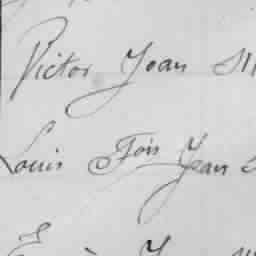 Victor Jean
Louis Fois Jean